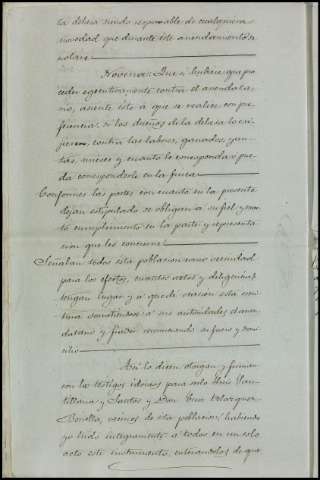 la dehesa siendo responsable de cualquiera
novedad que durante este arrendamiento se
notare
Novena: Que si hubiere que pro
ceder egecutivamente contra el arrendata
rio, asiente éste á que se realice con pre
ferencia, si los dueños de la dehesa lo exi
jieren, contra las labores, ganados, yun
tas, mieses y cuanto le corresponda ó pue
da corresponderle en la finca
Conformes las partes con cuanto en la presente
dejan estipulado se obligan á su fiel y exac
to cumplimiento en la parte y representa
cion que les concierne
Señalan todos esta poblacion como vecindad
para los efectos, cuantos actos y diligencias
tengan lugar y á que dé ocasion esta escri
tura sometiendose á sus autoridades el arren
datario y fiador renunciando su fuero y domi
cilio
Así lo dicen otorgan y firman
con los testigos idoneos para ello Luis
y Santos y Don Cruz Velazquez
Bonilla, vecinos de esta poblacion, habiendo
yo leido integramente á todos en un solo
acto este instrumento, enterandoles de que